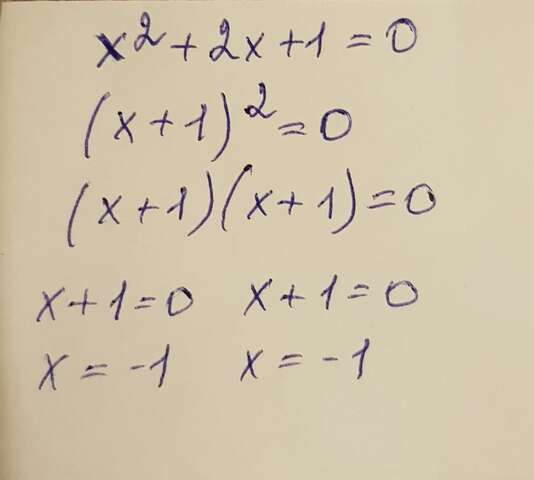 x² + 2x + 1 = 0
(x + 1)² = 0
(x + 1)(x + 1) = 0
x + 1 = 0 x + 1 = 0
x = -1 x = -1